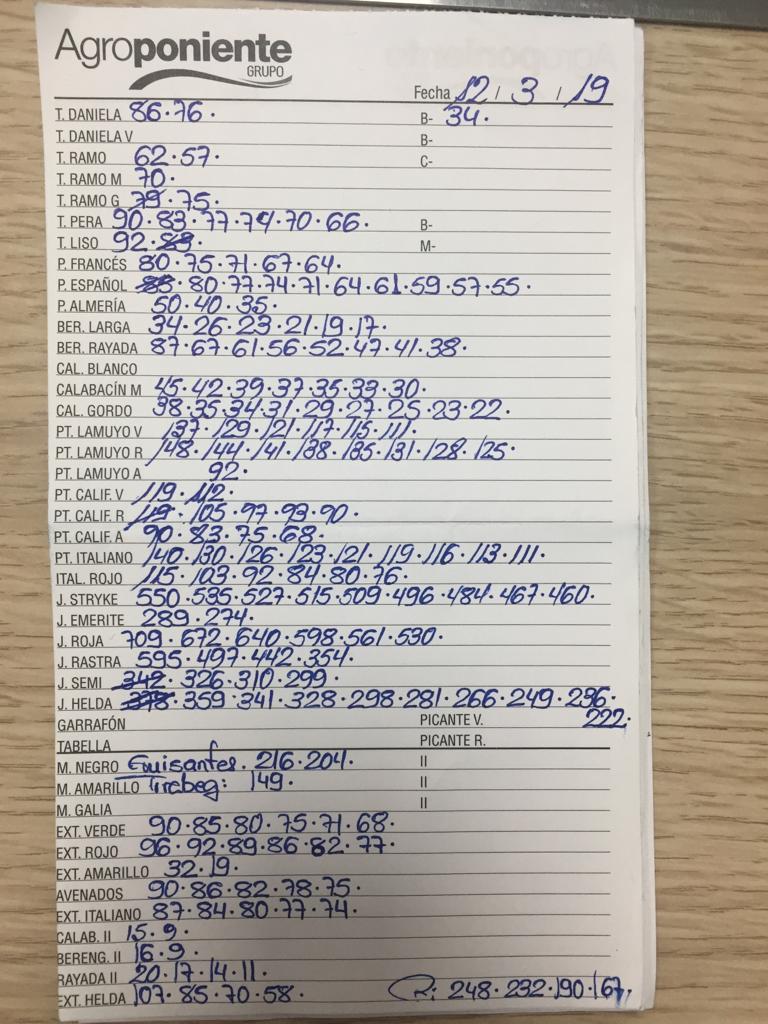 Agroponiente
GRUPO
Fecha 12 / 3 / 19
T. DANIELA 86·76· B- 34·
T. DANIELA V B-
T. RAMO 62·57· C-
T. RAMO M 70·
T. RAMO G 79·75·
T. PERA 90·83·77·74·70·66· B-
T. LISO 92·88· M-
P. FRANCÉS 80·75·71·67·64·
P. ESPAÑOL 80·77·74·71·64·61·59·57·55·
P. ALMERÍA 50·40·35·
BER. LARGA 34·26·23·21·19·17·
BER. RAYADA 87·67·61·56·52·47·41·38·
CAL. BLANCO
CALABACÍN M 45·42·39·37·35·33·30·
CAL. GORDO 38·35·34·31·29·27·25·23·22·
PT. LAMUYO V 137·129·121·117·115·111·
PT. LAMUYO R 148·144·141·138·135·131·128·125·
PT. LAMUYO A 92·
PT. CALIF. V 119·112·
PT. CALIF. R 119·105·97·93·90·
PT. CALIF. A 90·83·75·68·
PT. ITALIANO 140·130·126·123·121·119·116·113·111·
ITAL. ROJO 115·103·92·84·80·76·
J. STRYKE 550·535·527·515·509·496·484·467·460·
J. EMERITE 289·274·
J. ROJA 709·672·640·598·561·530·
J. RASTRA 595·497·442·354·
J. SEMI 342·326·310·299·
J. HELDA 378·359·341·328·298·281·266·249·236·
GARRAFÓN PICANTE V. 222·
TABELLA PICANTE R.
M. NEGRO Guisantes. 216·204· II
M. AMARILLO Tirabeq: 149· II
M. GALIA II
EXT. VERDE 90·85·80·75·71·68·
EXT. ROJO 96·92·89·86·82·77·
EXT. AMARILLO 32·19·
AVENADOS 90·86·82·78·75·
EXT. ITALIANO 87·84·80·77·74·
CALAB. II 15·9·
BERENG. II 16·9·
RAYADA II 20·17·14·11·
EXT. HELDA 107·85·70·58· R: 248·232·190·167·